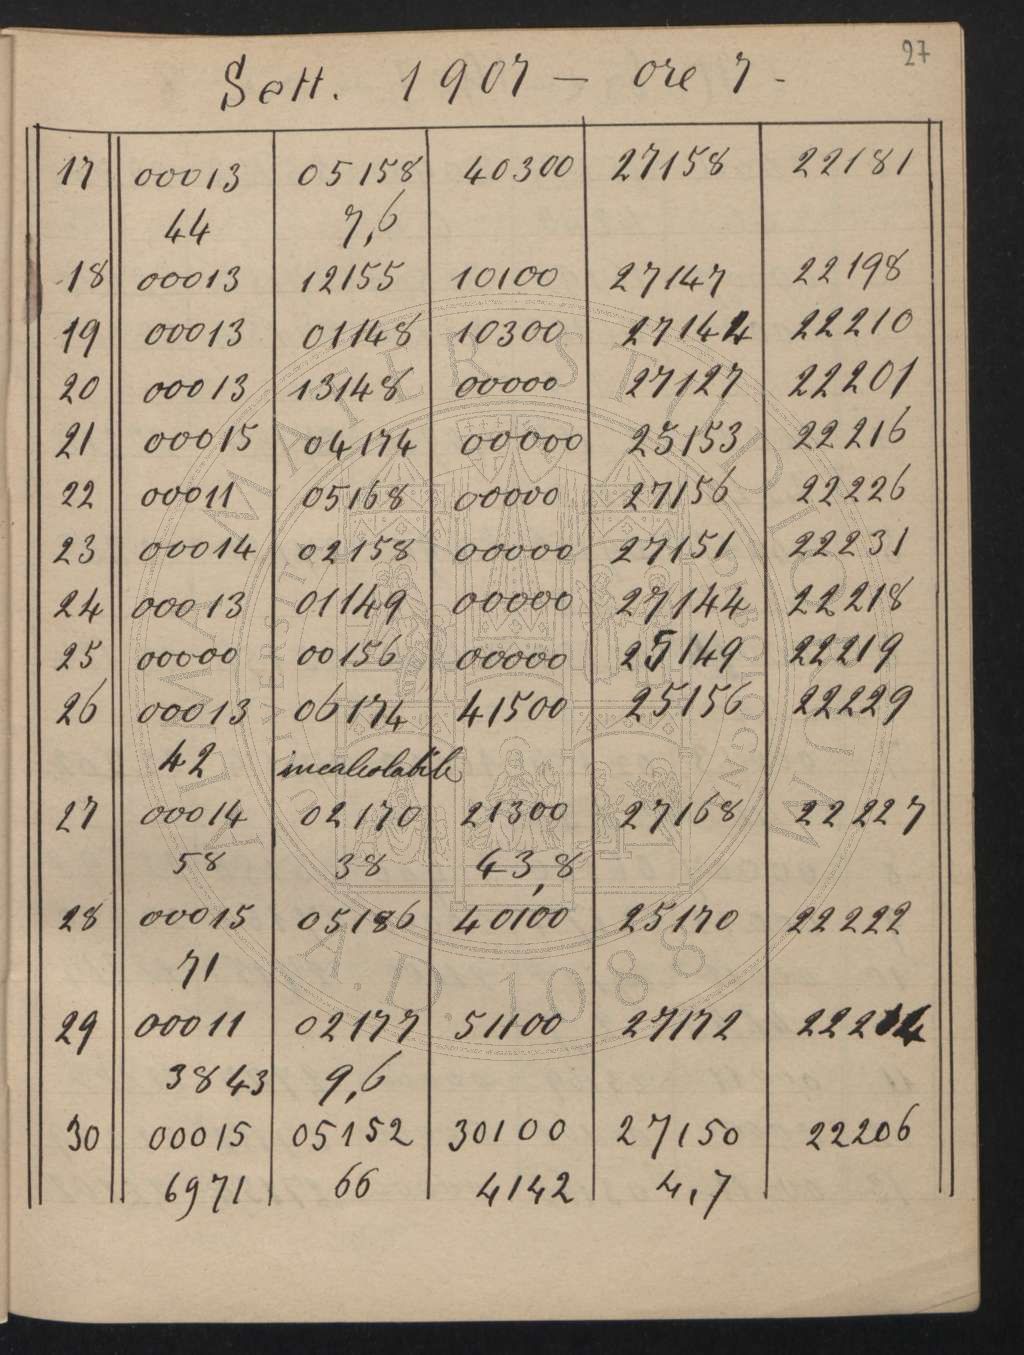 27
Sett. 1907 — ore 7 -
17 00013 05158 40300 27158 22181
44 7,6
18 00013 12155 10100 27147 22198
19 00013 01148 10300 27144 22210
20 00013 13148 00000 27127 22201
21 00015 04174 00000 25153 22216
22 00011 05168 00000 27156 22226
23 00014 02158 00000 27151 22231
24 00013 01149 00000 27144 22218
25 00000 00156 00000 25149 22219
26 00013 06174 41500 25156 22229
42 incalcolabile
27 00014 02170 21300 27168 22227
58 38 43,8
28 00015 05186 40100 25170 22222
71
29 00011 02177 51100 27172 22214
3843 9,6
30 00015 05152 30100 27150 22206
6971 66 4142 4,7
ALMA MATER STUDIORUM
A.D. 1088